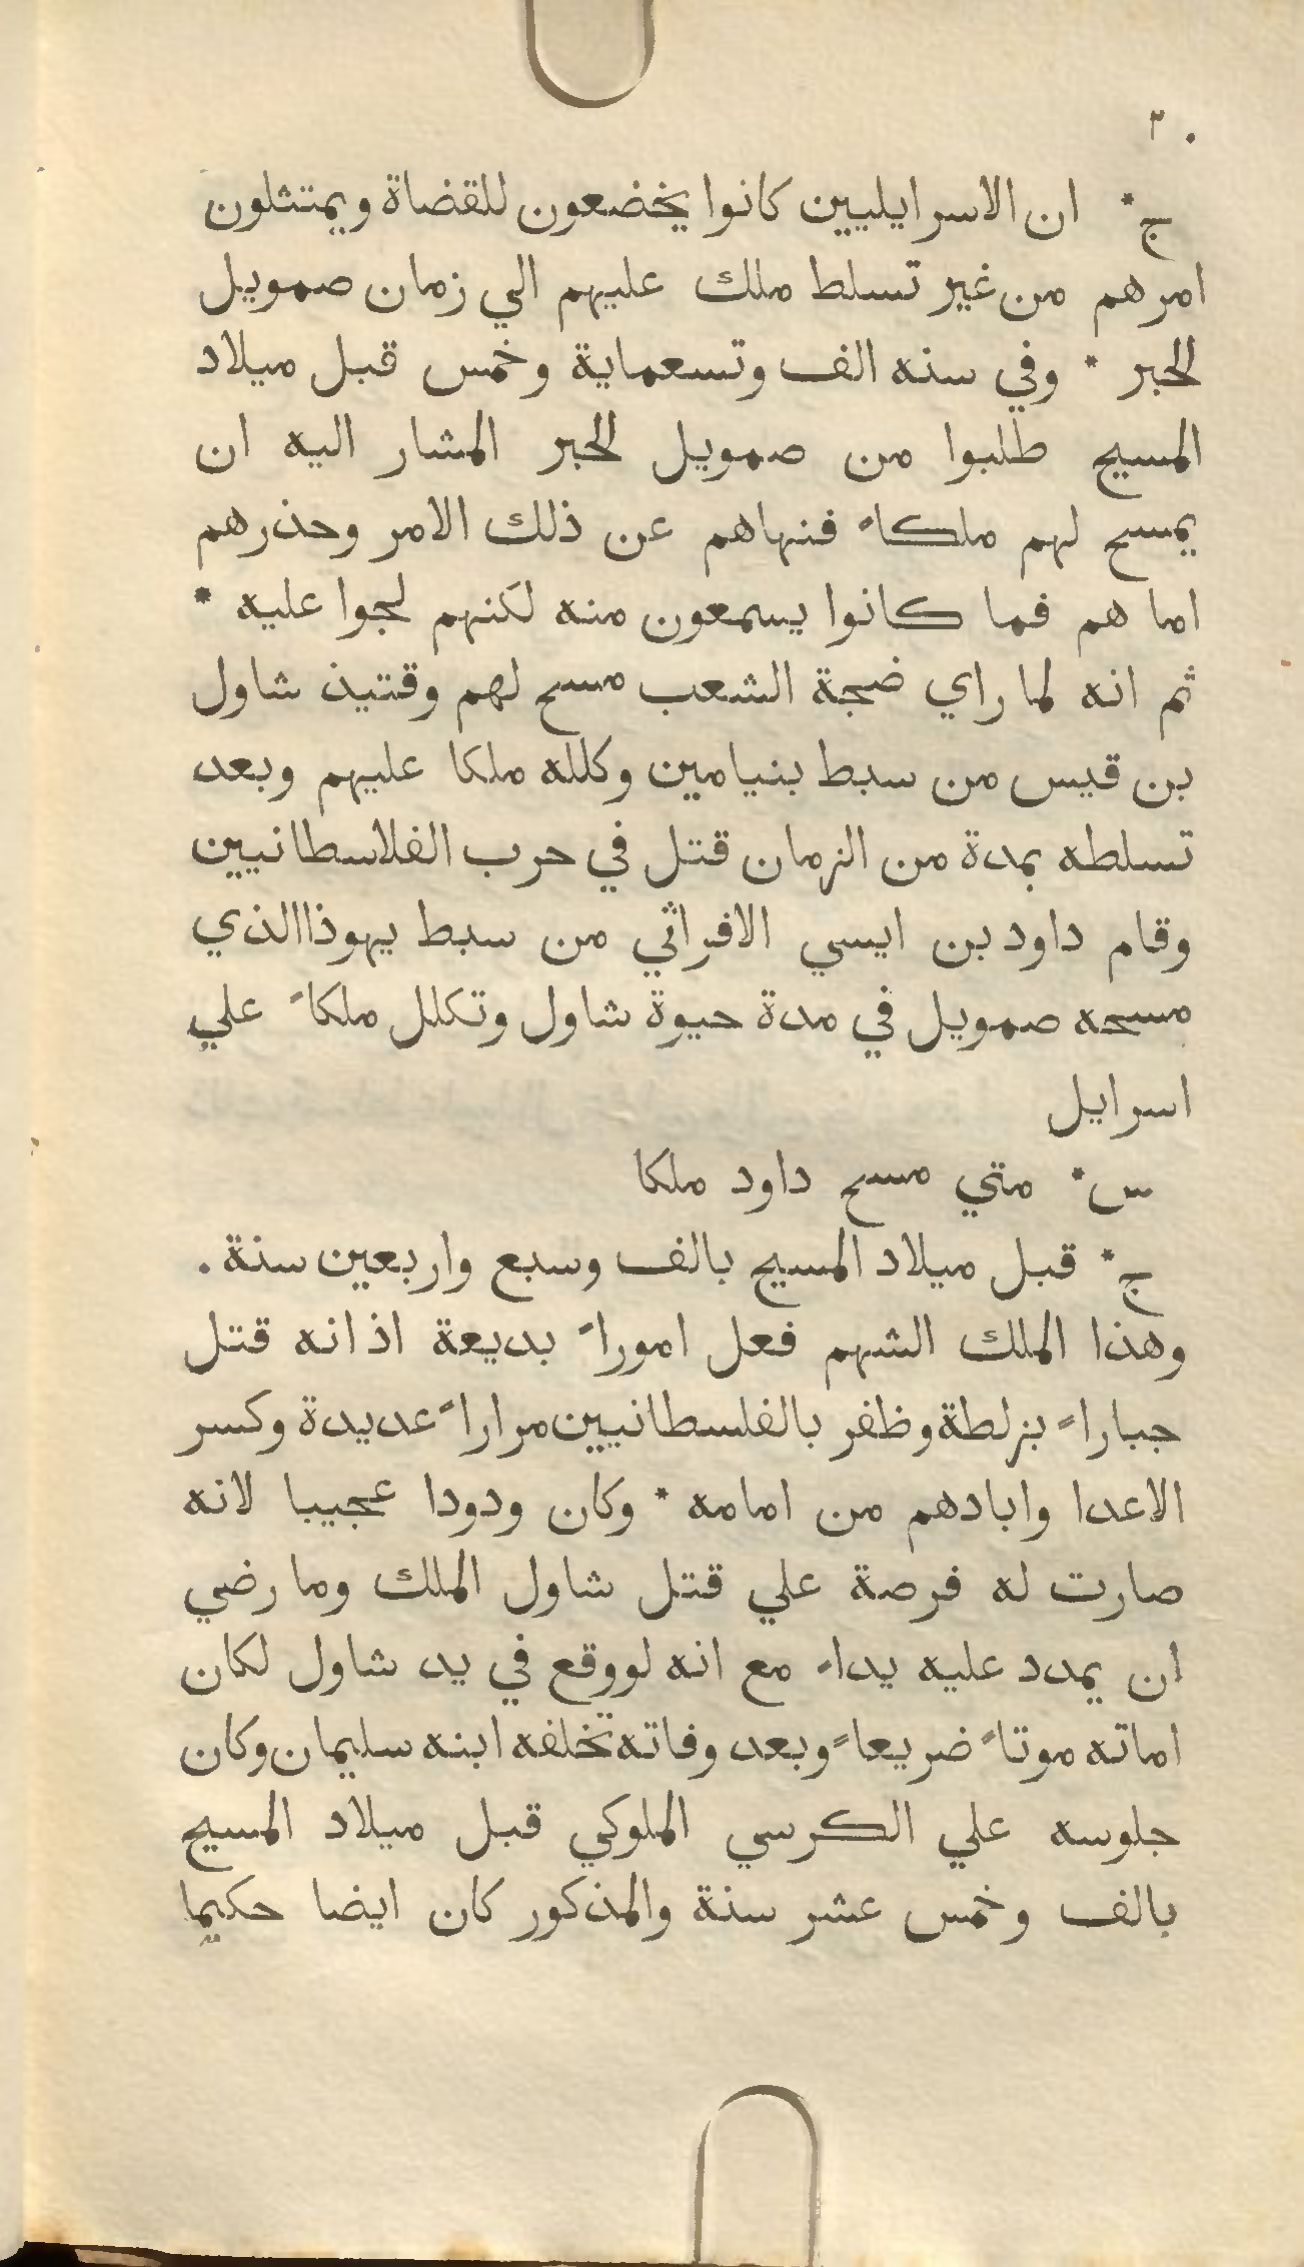 ٣٠
ج * ان الاسرايليين كانوا يخضعون للقضاة ويمتثلون
امرهم من غير تسلط ملك عليهم الي زمان صمويل
الحبر * وفي سنه الف وتسعماية وخمس قبل ميلاد
المسيح طلبوا من صمويل الحبر المشار اليه ان
يمسح لهم ملكاً فنهاهم عن ذلك الامر وحذرهم
اما هم فما كانوا يسمعون منه لكنهم لجوا عليه *
ثم انه لما راي ضجة الشعب مسح لهم وقتيذ شاول
بن قيس من سبط بنيامين وكلله ملكا عليهم وبعد
تسلطه بمدة من الزمان قتل في حرب الفلاسطانيين
وقام داود بن ايسي الافراثي من سبط يهوذا الذي
مسحه صمويل في مدة حيوة شاول وتكلل ملكاً علي
اسرايل
س * متي مسح داود ملكا
ج * قبل ميلاد المسيح بالف وسبع واربعين سنة .
وهذا الملك الشهم فعل اموراً بديعة اذ انه قتل
جباراً بزلطة وظفر بالفلسطانيين مراراً عديدة وكسر
الاعدا وابادهم من امامه * وكان ودودا عجيبا لانه
صارت له فرصة علي قتل شاول الملك وما رضي
ان يمدد عليه يداً مع انه لو وقع في يد شاول لكان
اماته موتاً ضريعاً وبعد وفاته تخلفه ابنه سليمان وكان
جلوسه علي الكرسي الملوكي قبل ميلاد المسيح
بالف وخمس عشر سنة والمذكور كان ايضا حكيما